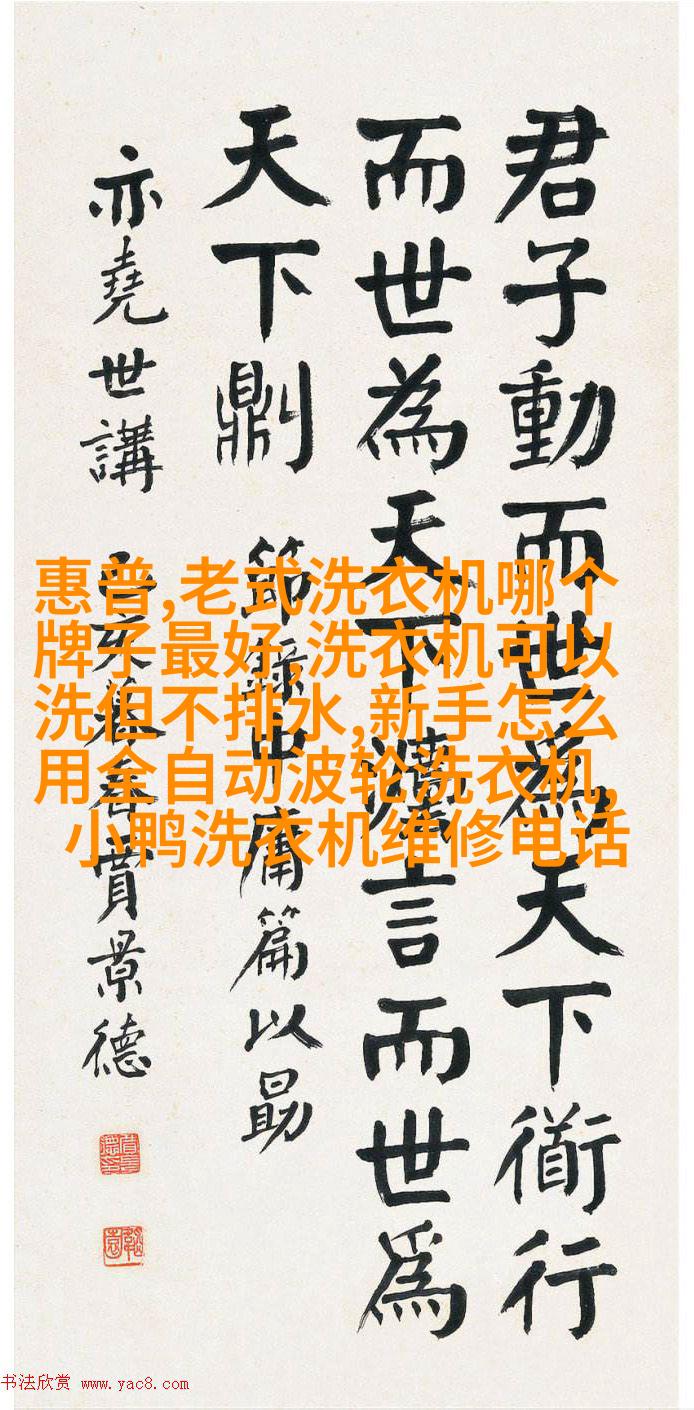 君子動而世爲天下衜行
而世為天下灋言而世爲
天下𠟭
節錄中庸篇以勗
亦堯世講 乙亥暮春賈景德
惠普,老式洗衣机哪个
牌子最好,洗衣机可以
洗但不排水,新手怎么
用全自动波轮洗衣机,
小鸭洗衣机维修电话
书法欣赏 www.yac8.com